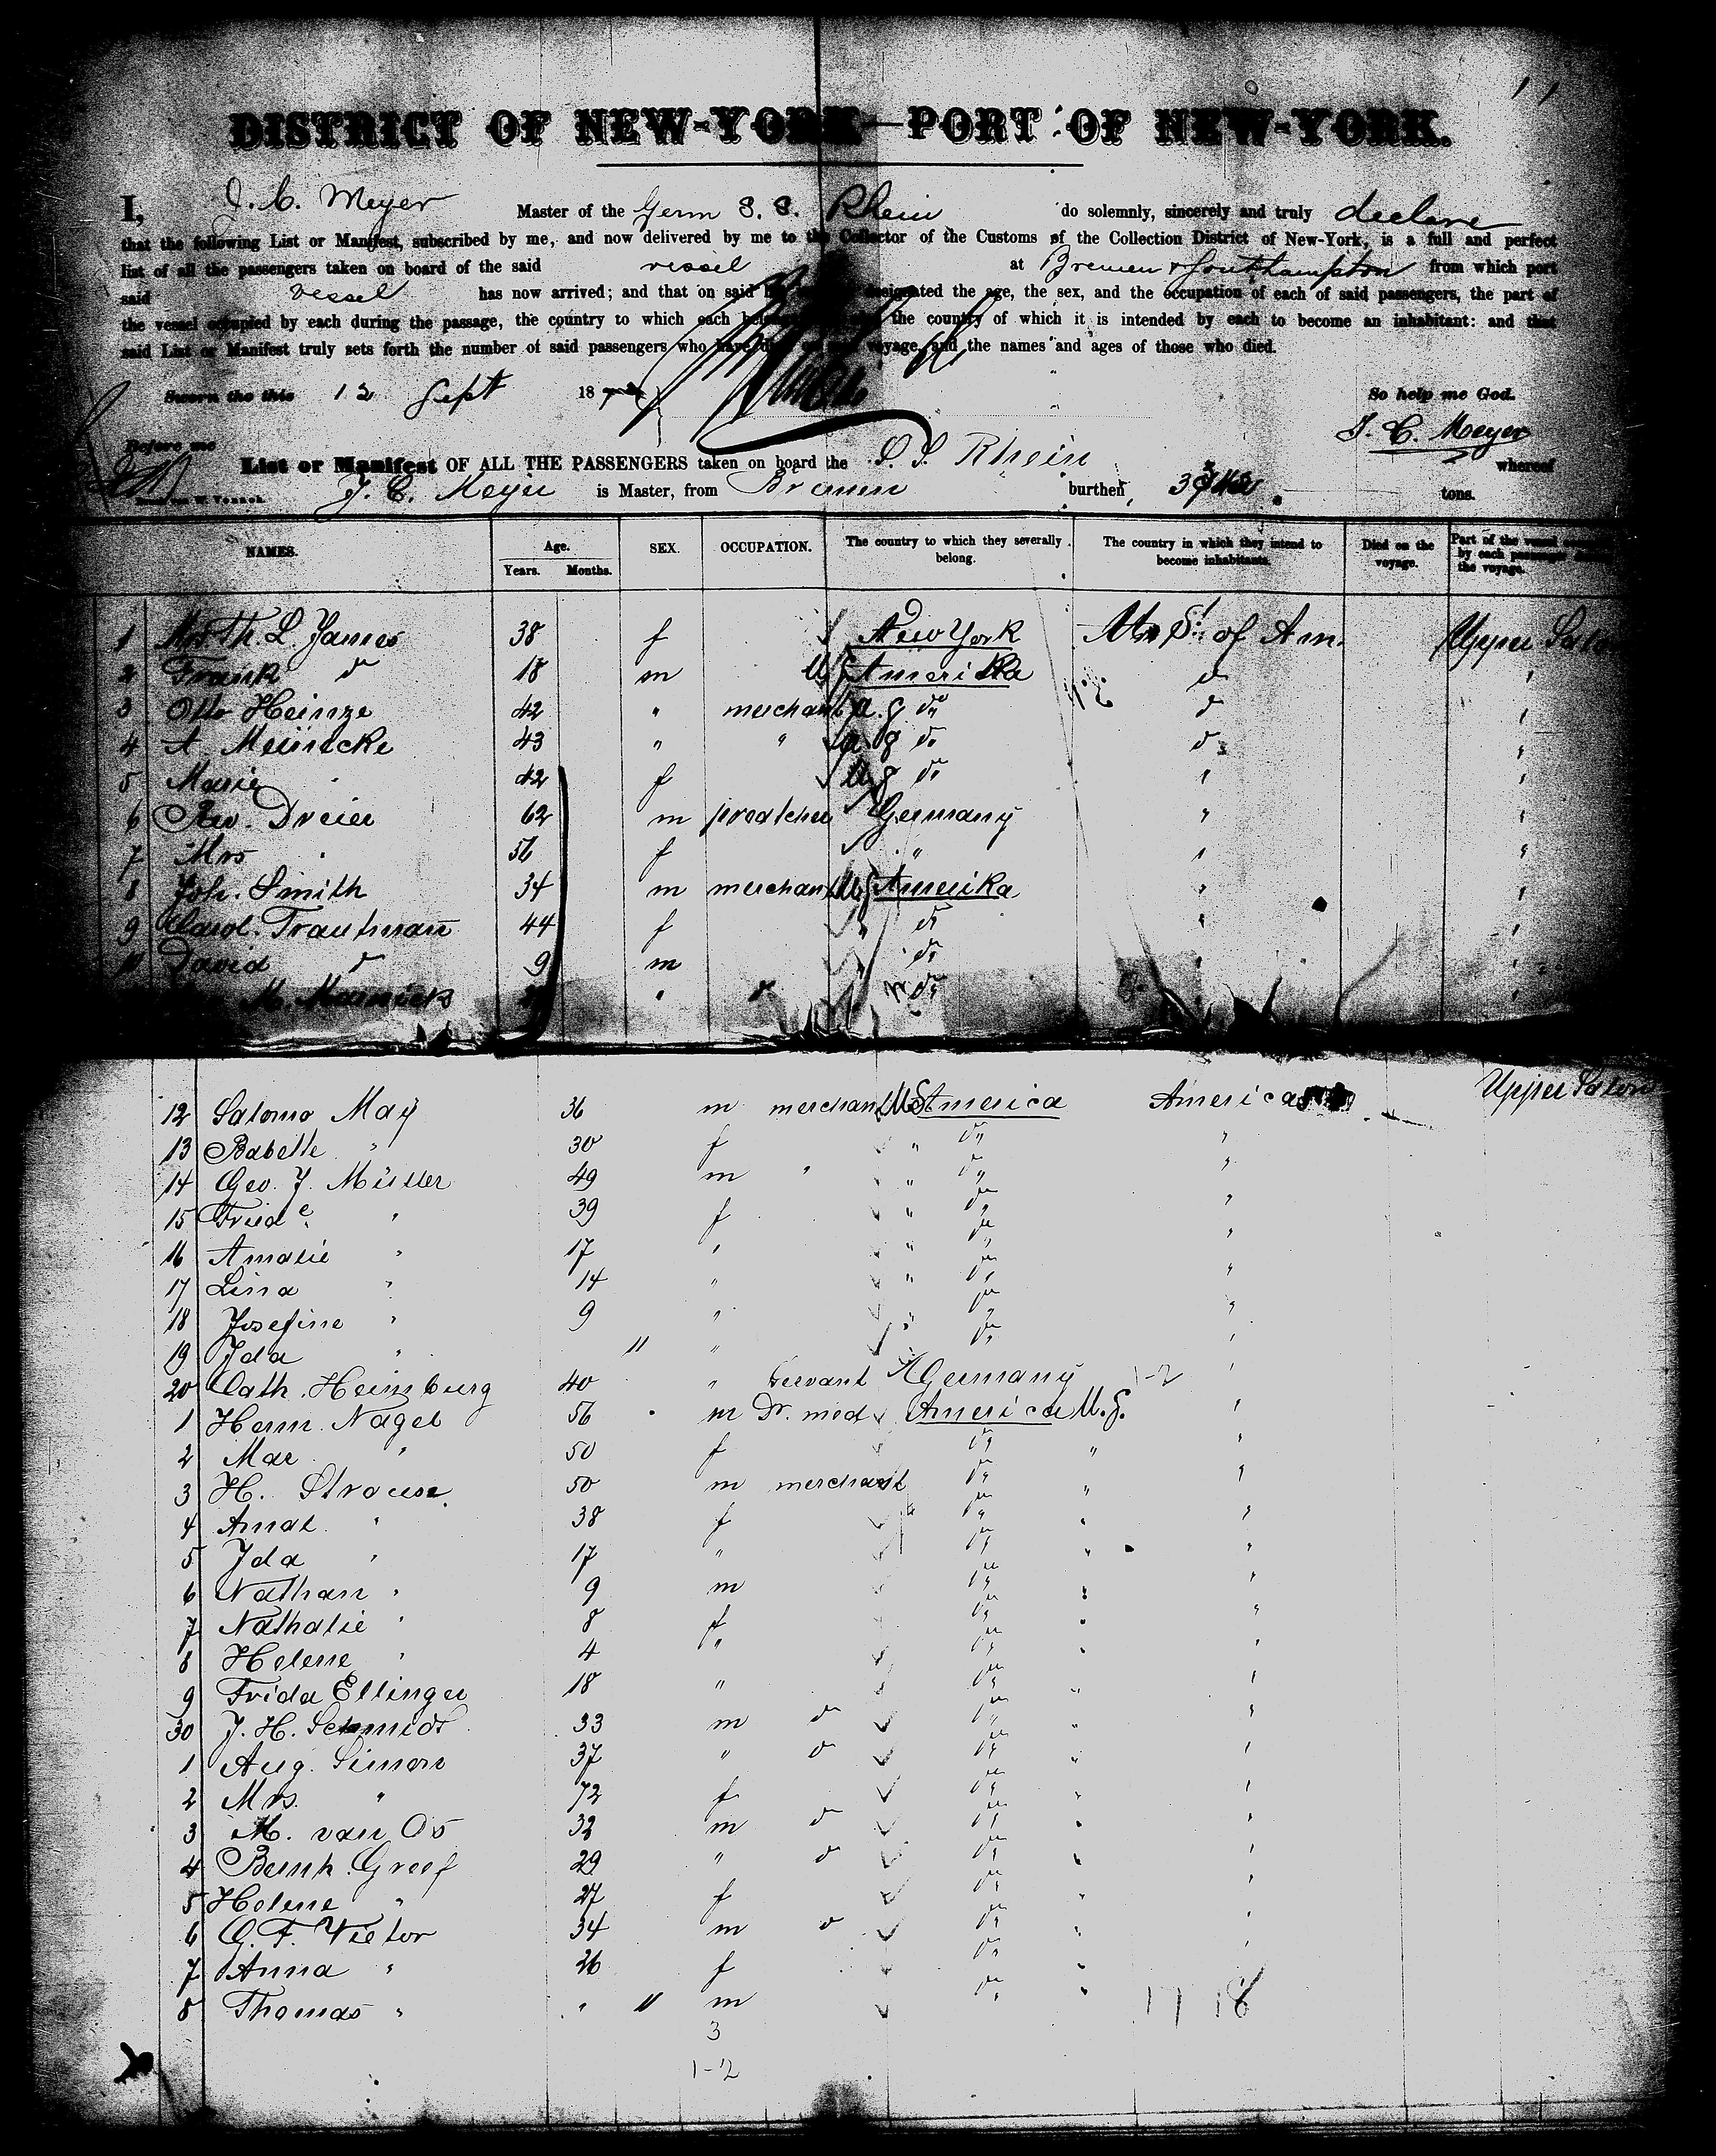 DISTRICT OF NEW-YORK—PORT OF NEW-YORK.
I, J. C. Meyer Master of the Germ S. S. Rhein do solemnly, sincerely and truly declare
that the following List or Manifest, subscribed by me, and now delivered by me to the Collector of the Customs of the Collection District of New-York, is a full and perfect
list of all the passengers taken on board of the said vessel at Bremen & Southampton from which port
said vessel has now arrived; and that on said designated the age, the sex, and the occupation of each of said passengers, the part of
the vessel occupied by each during the passage, the country to which each the country of which it is intended by each to become an inhabitant: and that
said List or Manifest truly sets forth the number of said passengers who have voyage, and the names and ages of those who died.
Sworn the this 12 Sept 18 So help me God.
J. C. Meyer
Before me
List or Manifest OF ALL THE PASSENGERS taken on board the S. S. Rhein whereof
J. C. Meyer is Master, from Bremen burthen tons.
NAMES. Age. Years. Months. SEX. OCCUPATION. The country to which they severally belong. The country in which they intend to become inhabitants. Died on the voyage. Part of the vessel by each passenger the voyage.
1 Mrs Th. L. James 38 f New York Un St. of Am. Upper Salon
2 Frank do 18 m US Amerika do "
3 Otto Heinze 42 " merchant do do "
4 A. Meinecke 43 " " do do "
5 Marie " 42 f do " "
6 Rev. Dreier 62 m preatcher Germany " "
7 Mrs " 56 f " " "
8 Joh. Smith 34 m merchant US Amerika " "
9 Carol. Trautmann 44 f do " "
10 David do 9 m do " "
M. Mainick " do do "
12 Salomo May 36 m merchant US America America Upper Salon
13 Babette " 30 f " do "
14 Geo. J. Müller 49 m " " do "
15 Fried e " 39 f " do "
16 Amalie " 17 " " do "
17 Lina " 14 " " do "
18 Josefine " 9 " " do "
19 Ida " 11 " do "
20 Cath. Heinsburg 40 " servant Germany 1-2 "
1 Herm. Nagel 56 m Dr. med America U.S. "
2 Mar " 50 f do " "
3 H. Strouse 50 m merchant do " "
4 Amal. " 38 f do " "
5 Ida " 17 " do " "
6 Nathan " 9 m do " "
7 Nathalie " 8 f do " "
8 Helene " 4 " do " "
9 Frida Ellinger 18 " do " "
30 J. H. Schmidt 33 m do do " "
1 Aug. Simon 37 " do do " "
2 Mrs. " 72 f do " "
3 M. van Os 32 m do do " "
4 Bernh. Greef 29 " do do " "
5 Helene " 27 f do " "
6 G. F. Vietor 34 m do do " "
7 Anna " 26 f do " "
8 Thomas " " 11 m do " 17 18
3
1-2